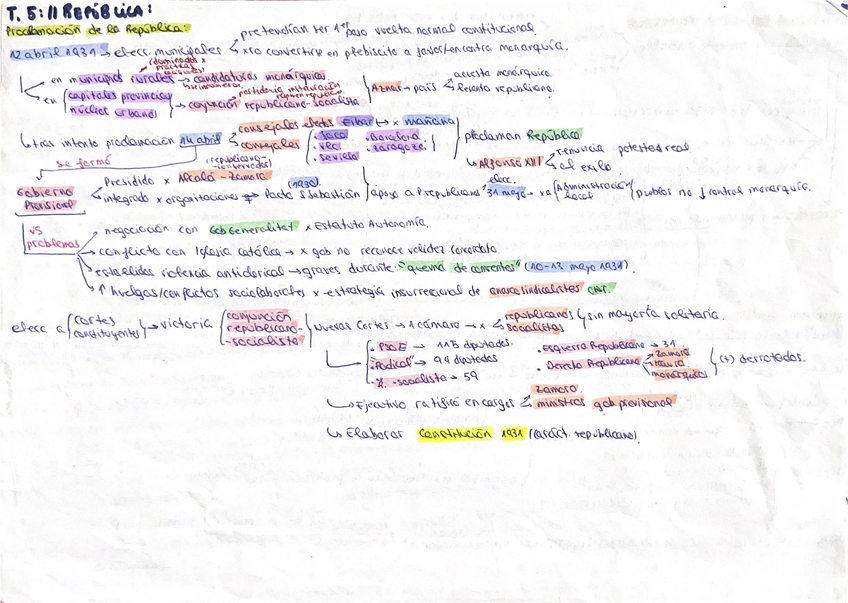 T. 5: II REPÚBLICA:
Proclamación de la República:
pretendían ser 1er paso vuelta normal constitucional.
12 abril 1931 → elecc. municipales
xro convertirse en plebiscito a favor/en contra monarquía.
(dominados x
en municipios rurales → candidaturas monárquicas
en capitales provincia
núcleos urbano
partidaria instauración
conjunción republicano-socialista
Aznar → país
acuesta monárquico
levanta republicano.
tras intento proclamación 14 abril
concejales electos Eibar → x mañana
concejales
Jaca
Vlc
Sevilla
Barcelona
Zaragoza
proclaman República
Alfonso XIII
renuncia potestad real
al exilio.
se formó
Gobierno
Provisional
Presidido x Alcalá-Zamora
(republicano-
-conservador)
integrado x organizaciones Pacto S.Sebastián
(1930)
apoyo a P. republicano
elecc.
31 mayo → xa
Administración
local
pueblos no control monarquía.
vs
problemas
negociación con Gob Generalitat x Estatuto Autonomía.
conflicto con Iglesia católica → x gob no reconoce validez concordato
estallidos violencia anticlerical → graves durante "quema de conventos" (10-13 mayo 1931).
↑ huelgas/conflictos sociolaborales x estrategia insurreccional de anarcosindicalistas CNT.
elecc a cortes
constituyentes
→ victoria
conjunción
republicano-
-socialista
Nuevas Cortes → 1 cámara → x
republicanos
socialistas
sin mayoría solitaria.
• PSOE → 115 diputados.
• Radical → 94 diputados
• R. -socialista → 59
• Esquerra Republicana → 31
• Derecha Republicana
Zamora
Maura
monárquicos
(+) derrotados.
Ejecutivo ratificó en cargos
Zamora
ministros gob provisional
Elaborar Constitución 1931 (caráct. republicano).